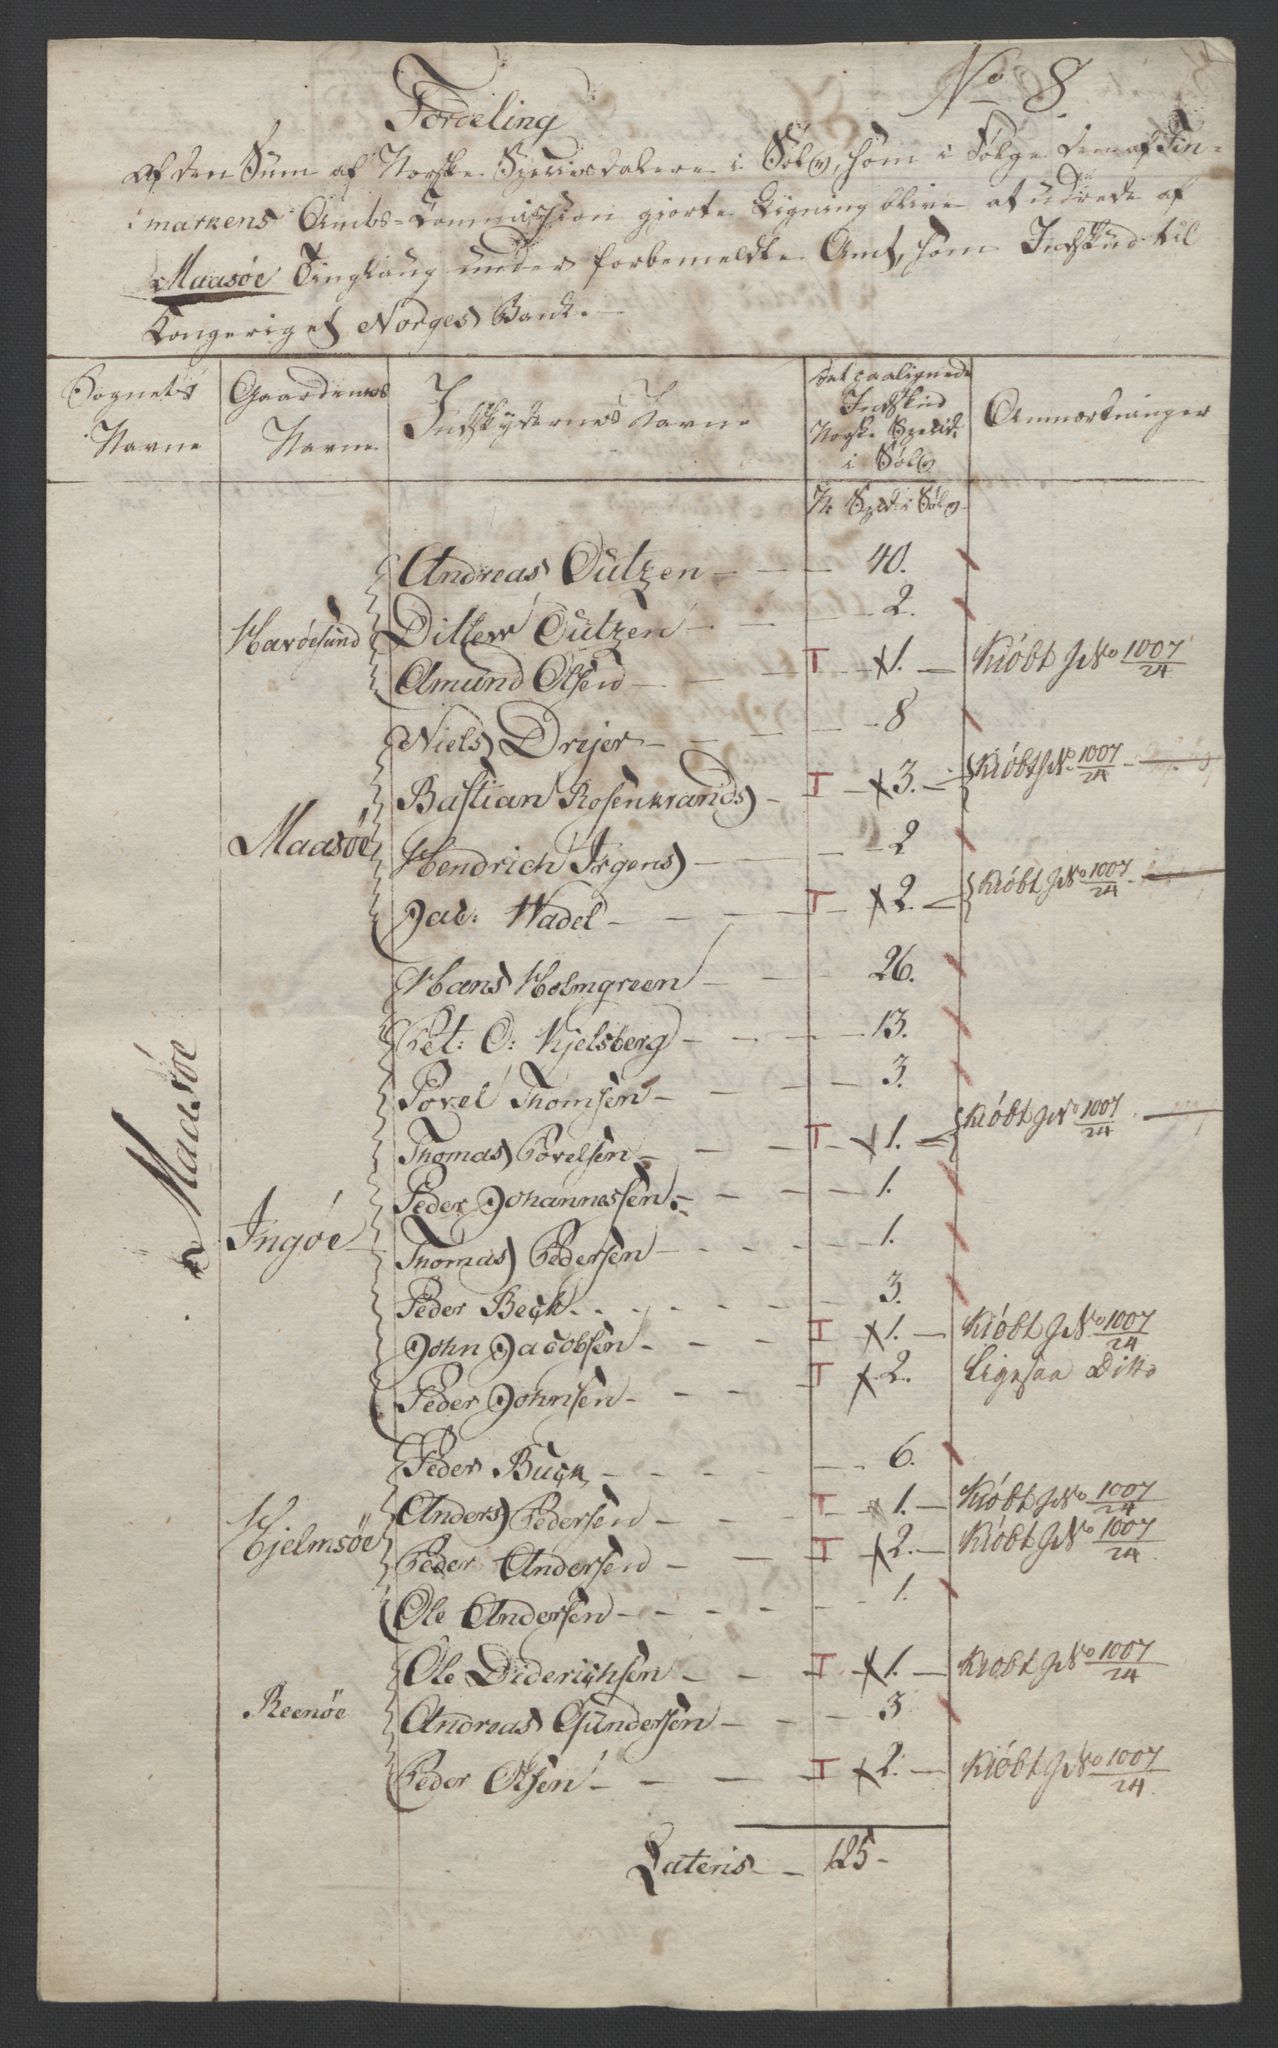 No 8
Fordeling
af den Sum af Norske Speciesdalere i Sølv, som i Følge den af Fin-
markens Ambts-Commission giorte Ligning blive at udrede af
Maasøe Tinglaug under forbemeldte Amt, som Indskud til
Kongeriget Norges Bank.
Sognets Navne
Gaardenes Navne
Indskydernes Navne
det paalignede Indskud Norske Specid. i Sølv
Anmærkninger
N. Specd. i Sølv
Maasøe
Havøesund
Andreas Outzen - - - 40.
Ditlew Outzen - - - 2.
Amund Olsen - - - T - x 1. - Kiöbt J No 1007/24
Maasøe
Niels Dryer - - - 8
Bastian Rosenkrands - T - x 3. - Kiöbt J No 1007/24
Hendrich Irgens - - - 2
Jac: Wadel - - - T - x 2. - Kiöbt J No 1007/24
Ingøe
Hans Holmgreen - - - 26.
Pet: O: Kjelsberg - - - 13.
Povel Thomsen - - - 3.
Thomas Povelsen - - - T - x 1. - Kiöbt J No 1007/24
Peder Johannessen - - - 1.
Thomas Pedersen - - - 1.
Peder Beck - - - 3.
John Jacobsen - - - T x 1. - Kiöbt J No 1007/24
Peder Johnsen - - - T x 2. Ligesaa Ditto
Hjelmsöe
Peder Buck - - - 6.
Anders Pedersen - - - T - x 1. - Kiöbt J No 1007/24
Peder Andersen - - - T - x 2. - Kiöbt J No 1007/24
Ole Andersen - - - 1.
Reenöe
Ole Diderichsen - - - T - x 1. - Kiobt J No 1007/24
Andreas Gundersen - - - 3
Peder Olsen - - - T - x 2. - Kiöbt J No 1007/24
Lateris - - 125 -